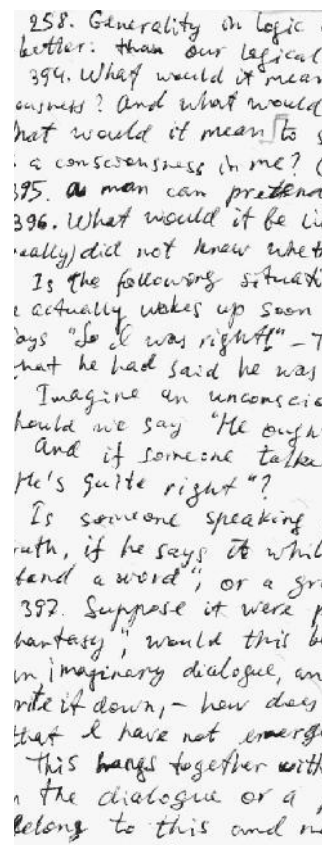 258. Generality in logic
better: than our logical
394. What would it mean
ousness? And what would
hat would it mean to s
a consciousness in me? (
395. a man can pretend
396. What would it be li
really) did not know wheth
Is the following situati
actually wakes up soon
ays "So I was right!" – T
hat he had said he was
Imagine an unconscio
hould we say "He ough
And if someone talke
He's quite right"?
Is someone speaking
ruth, if he says it whil
tand a word", or a gr
397. Suppose it were p
hantasy", would this b
in imaginery dialogue, an
write it down, – how does
that I have not emerge
This hangs together with
the dialogue or a
belong to this and n